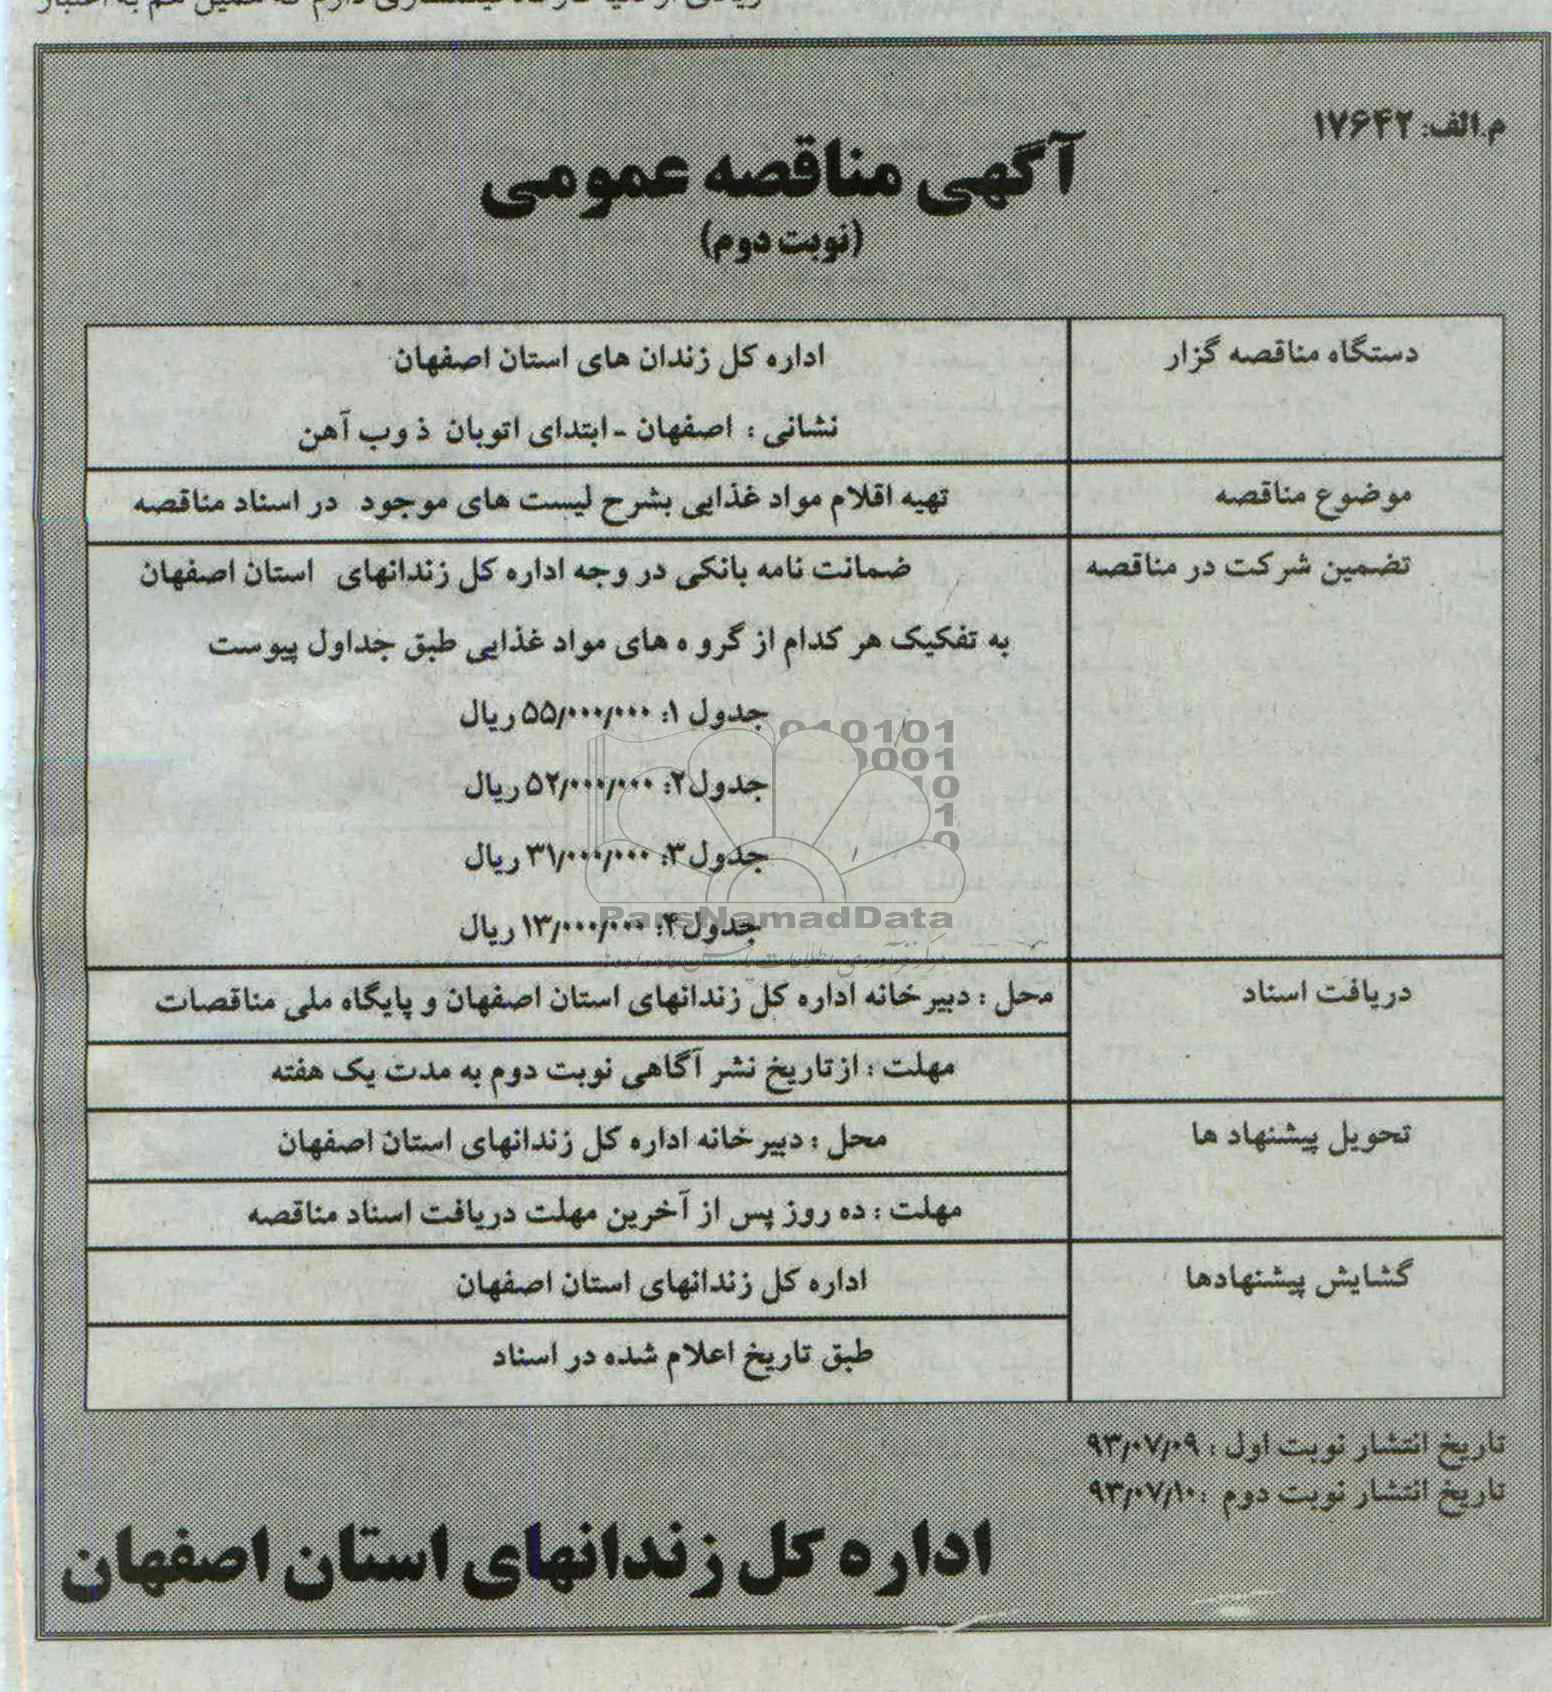 م.الف: ۱۷۶۴۲
آگهی مناقصه عمومی
(نوبت دوم)
دستگاه مناقصه گزار
اداره کل زندان های استان اصفهان
نشانی : اصفهان - ابتدای اتوبان ذوب آهن
موضوع مناقصه
تهیه اقلام مواد غذایی بشرح لیست های موجود در اسناد مناقصه
تضمین شرکت در مناقصه
ضمانت نامه بانکی در وجه اداره کل زندانهای استان اصفهان
به تفکیک هر کدام از گروه های مواد غذایی طبق جداول پیوست
جدول ۱: ۵۵/۰۰۰/۰۰۰ ریال
جدول۲: ۵۲/۰۰۰/۰۰۰ ریال
جدول۳: ۳۱/۰۰۰/۰۰۰ ریال
جدول۴: ۱۳/۰۰۰/۰۰۰ ریال
010101
0001
10
1
0
ParsNamadData
دریافت اسناد
محل : دبیرخانه اداره کل زندانهای استان اصفهان و پایگاه ملی مناقصات
مهلت : ازتاریخ نشر آگاهی نوبت دوم به مدت یک هفته
تحویل پیشنهاد ها
محل : دبیرخانه اداره کل زندانهای استان اصفهان
مهلت : ده روز پس از آخرین مهلت دریافت اسناد مناقصه
گشایش پیشنهادها
اداره کل زندانهای استان اصفهان
طبق تاریخ اعلام شده در اسناد
تاریخ انتشار نوبت اول : ۹۳/۰۷/۰۹
تاریخ انتشار نوبت دوم : ۹۳/۰۷/۱۰
اداره کل زندانهای استان اصفهان